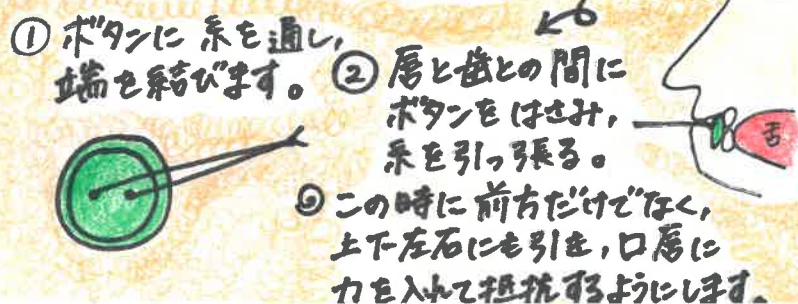 ① ボタンに 糸を通し,
端を結びます。
② 唇と歯との間に
ボタンをはさみ,
糸を引っ張る。
舌
◎ この時に前方だけでなく,
上下左右にも引き,口唇に
力を入れて抵抗するようにします。